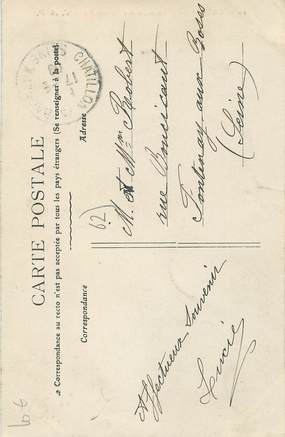 CARTE POSTALE
Correspondance au recto n'est pas acceptée par tous les pays étrangers (Se renseigner à la poste)
Correspondance
Adresse
CHATILLON
62)
M. et Mme Robert
rue Boucicaut
Fontenay aux Roses
(Seine)
Affectueux Souvenir
Lucie